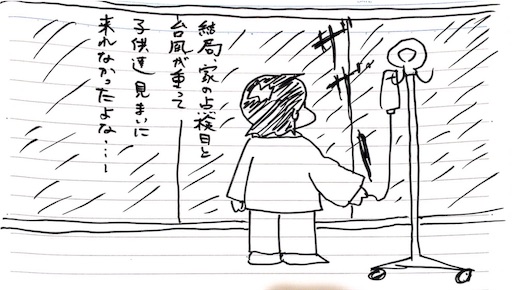 結局、家の点検日と
台風が重って
子供達見まいに
来れなかったよな…